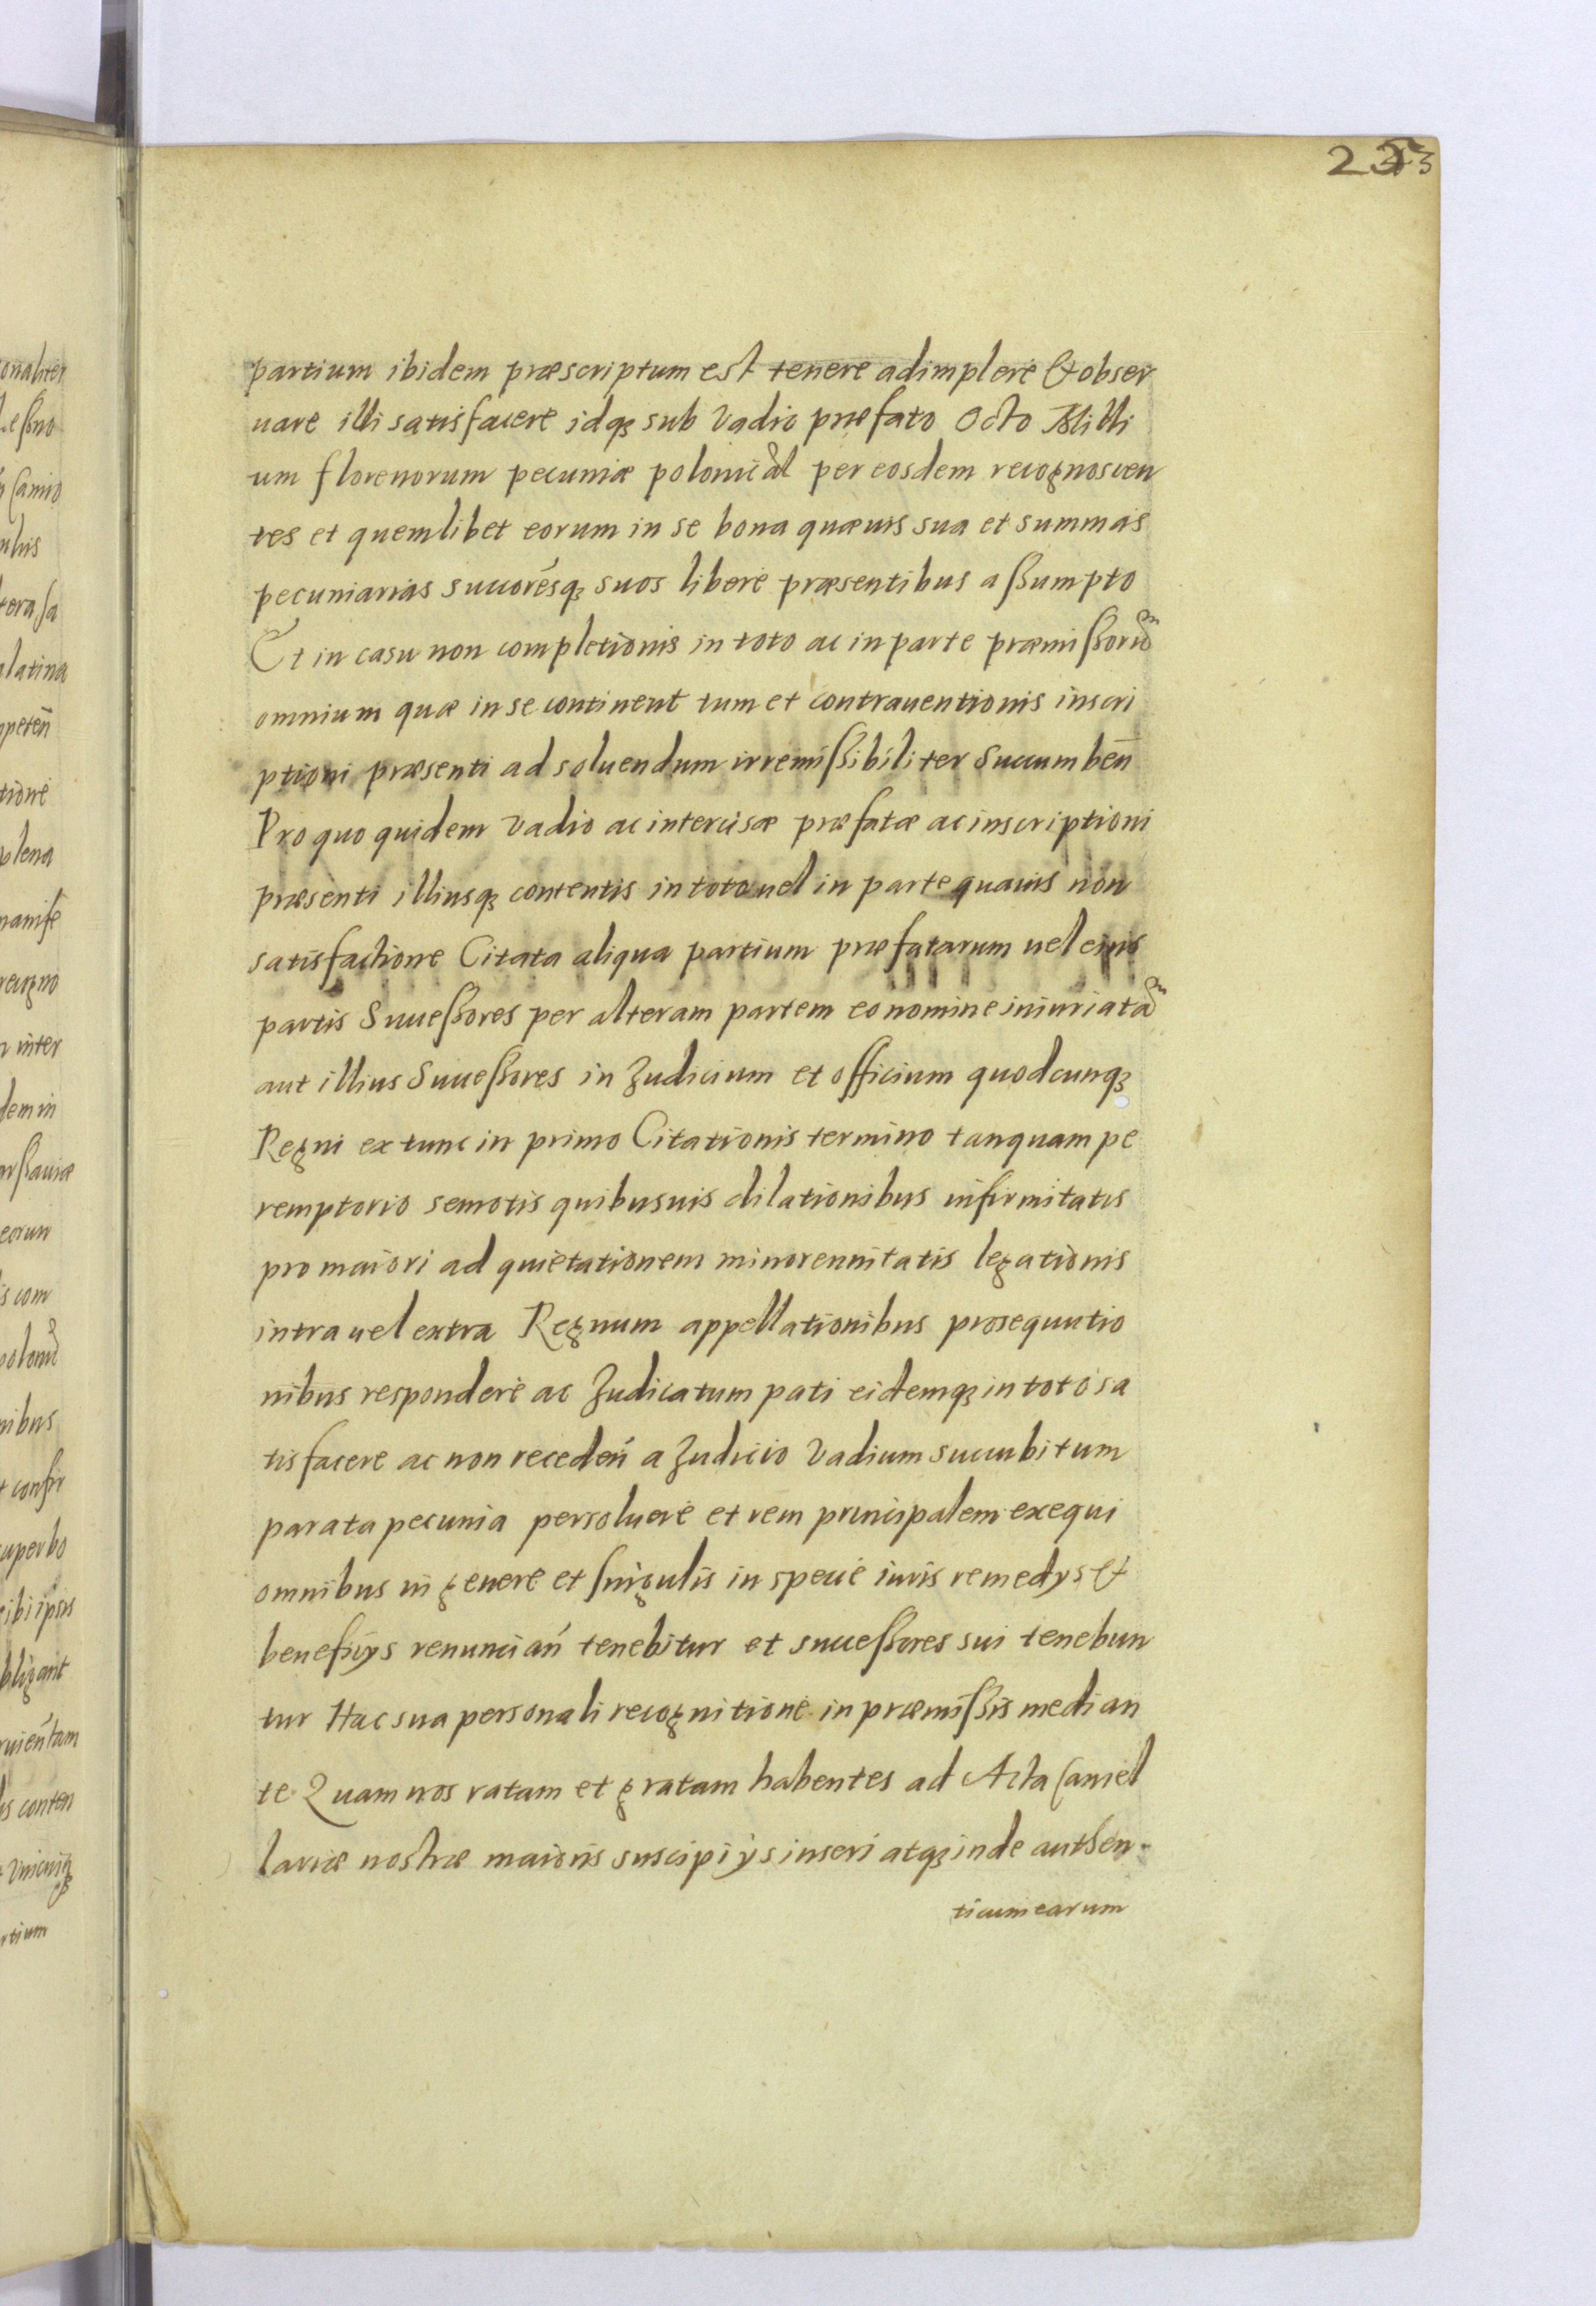 partium ibidem præscriptum est tenere adimplere & obser
uare illi satisfacere idqȝ sub Vadio præfato Octo Milli
um florenorum pecuniæ polonical per eosdem recognoscen
tes et quemlibet eorum in se bona quæuis sua et summas
pecuniarias succorésqȝ suos libere præsentibus assumpto
Et in casu non completionis in toto ac in parte præmissoru͂
omnium quæ in se continent tum et contrauentionis inscri
ptioni præsenti ad soluendum irremissibiliter Succumben̄
Pro quo quidem Vadio ac intercisæ præfatæ ac inscriptioni
præsenti illiusqȝ contentis in toto uel in parte quauis non
satisfactione Citata aliqua partium præfatarum uel eius
partis Successores per alteram partem eo nomine iniuriata͂
aut illius Successores in Judicium et officium quodcunqȝ
Regni ex tunc in primo Citationis termino tanquam pe
remptorio semotis quibusuis dilationibus infirmitatis
pro maiori ad quietationem minorennitatis legationis
intra uel extra Regnum appellationibus prosequutio
nibus respondere ac Judicatum pati eidemqȝ in toto sa
tisfacere ac non receden̄ a Judicio Vadium succubitum
parata pecunia persoluere et rem principalem exequi
omnibus in genere et singulis in specie iuris remedys &
beneficys renuncian̄ tenebitur et successores sui tenebun
tur Hac sua personali recognitione in præmissis median
te. Quam nos ratam et gratam habentes ad Acta Cancel
lariæ nostræ maioris suscipi ijs inseri atqȝ inde authen-
ticum earum